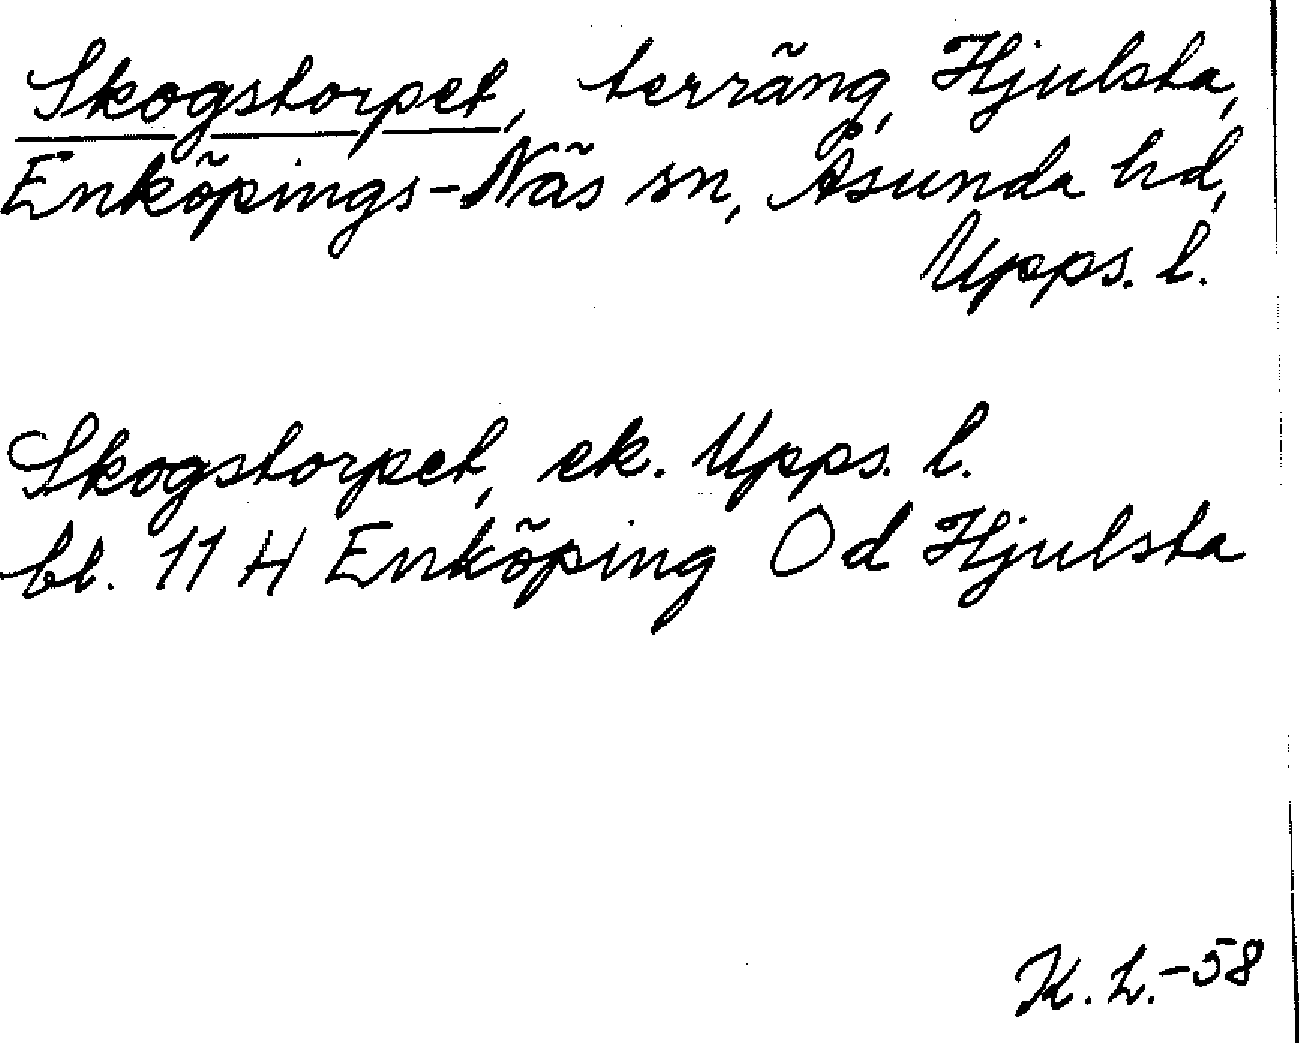 Skogstorpet, terräng, Hjulsta,
Enköpings-Näs sn, Åsunda hd,
Upps. l.
Skogstorpet, ek. Upps. l.
bl. 11 H Enköping Od Hjulsta
K. L. -58